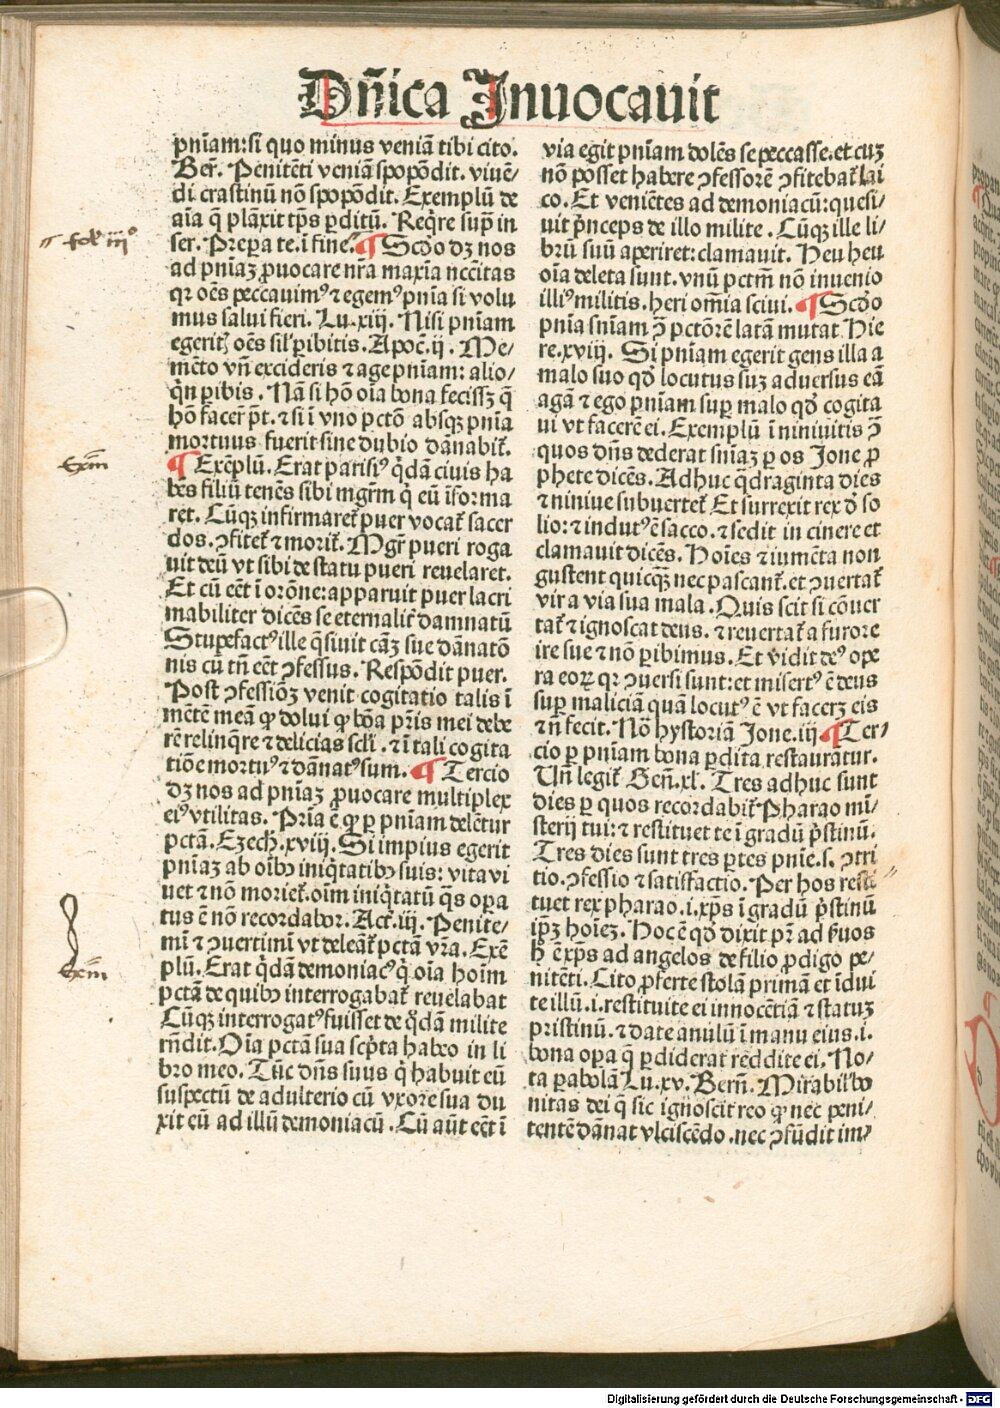 Dñica Inuocauit
pñiam: si quo minus veniā tibi cito.
Ber̄. Penitēti veniā spopōdit. viuē/
di crastinū nō spopōdit. Exemplū de
aīa q̄ plāxit tp̄s ꝑditū. Req̄re sup̄ in
ser. Prepa te. ī fine. ¶ Scd̄o dꝫ nos
ad pñiaꝫ ꝓuocare nr̄a maxīa nccītas
qꝛ oēs peccauimꝰ ⁊ egemꝰ pñia si volu
mus salui fieri. Lu. xiij. Nisi pñiam
egeritꝭ oēs sil̓ ꝑibitis. Apoc̄. ij. Me/
mēto vñ excideris ⁊ age pñiam: alio/
q̄n ꝑibis. Nā si hō oīa bona fecissꝫ q̄
hō facer̄ pt̄. ⁊ si ī vno pctō absqꝫ pñia
mortuus fuerit sine dubio dānabit̄.
¶ Exēplū. Erat parisiꝰ q̇dā ciuis ha
bēs filiū tenēs sibi mgr̄m q̇ eū īforma
ret. Cūqꝫ infirmaret̄ puer vocat̄ sacer
dos. ꝯfitet̄ ⁊ morit̄. Mgr̄ pueri roga
uit deū vt sibi de statu pueri reuelaret.
Et cū eēt ī orōne: apparuit puer lacri
mabiliter dicēs se eternalit̄ damnatū
Stupefactꝰ ille q̄siuit cāꝫ sue dānatō
nis cū tñ eēt ꝯfessus. Respōdit puer.
Post ꝯfessiōꝫ venit cogitatio talis ī
mētē meā ꝙ dolui ꝙ bōa pr̄is mei debe
rē relinq̄re ⁊ delicias scl̓i. ⁊ ī tali cogita
tiōe mortuꝰ ⁊ dānatꝰ sum. ¶ Tercio
dꝫ nos ad pñiaꝫ ꝓuocare multiplex
eiꝰ vtilitas. Pria ē ꝙ ꝑ pñiam delētur
pctā. Ezech. xviij. Si impius egerit
pñiaꝫ ab oībꝰ iniq̇tatibꝰ suis: vita vi
uet ⁊ nō moriet̄. oīm iniq̇tatū q̄s opa
tus ē nō recordabor. Act̄. iij. Penite/
mī ⁊ ꝯuertimī vt deleāt̄ pctā vr̄a. Exē
plū. Erat q̇dā demoniacꝰ q̇ oīa hoīm
pctā de quibꝰ interrogabat̄ reuelabat
Cūqꝫ interrogatꝰ fuisset de q̇dā milite
rñdit. Oīa pctā sua scp̄ta habeo in li
bro meo. Tūc dñs suus q̇ habuit eū
suspectū de adulterio cū vxore sua du
xit eū ad illū demoniacū. Cū aūt eēt ī
via egit pñiam dolēs se peccasse. et cuꝫ
nō posset habere ꝯfessorē ꝯfitebat̄ lai
co. Et veniētes ad demoniacū: quesi/
uit p̄nceps de illo milite. Cūqꝫ ille li/
brū suū aperiret: clamauit. Heu heu
oīa deleta sunt. vnū pctm̄ nō inuenio
illiꝰ militis. heri om̄ia sciui. ¶ Scd̄o
pñia sñiam ꝯ̄ pctōrē latā mutat Hie
re. xviij. Si pñiam egerit gens illa a
malo suo qd̄ locutus suꝫ aduersus eā
agā ⁊ ego pñiam suꝑ malo qd̄ cogita
ui vt facerē ei. Exemplū ī niniuitis ꝯ̄
quos dñs dederat sñiaꝫ ꝑ os Jone ꝓ
phete dicēs. Adhuc q̄draginta dies
⁊ niniue subuertet̄ Et surrexit rex d̄ so
lio: ⁊ indutꝰ ē sacco. ⁊ sedit in cinere et
clamauit dicēs. Hoīes ⁊ iumēta non
gustent quicqꝫ nec pascant̄. et ꝯuertat̄
vir a via sua mala. Quis scit si cōuer
tat̄ ⁊ ignoscat deus. ⁊ reuertat̄ a furore
ire sue ⁊ nō ꝑibimus. Et vidit deꝰ ope
ra eoꝝ qꝛ ꝯuersi sunt: et misertꝰ ē deus
suꝑ maliciā quā locutꝰ ē vt facerꝫ eis
⁊ ñ fecit. Nō hystoriā Jone. iij ¶ Ter/
cio ꝑ pñiam bona ꝑdita restauratur.
Vñ legit̄ Gen̄. xl. Tres adhuc sunt
dies ꝑ quos recordabit̄ Pharao mī/
sterij tui: ⁊ restituet te ī gradū p̄stinū.
Tres dies sunt tres ꝑtes pn̄ie. s. ꝯtri
tio. ꝯfessio ⁊ satisfactio. Per hos resti
tuet rex pharao. i. xp̄s ī gradū p̄stinū
ip̄ꝫ hoīeꝫ. Hoc ē qd̄ dixit pr̄ ad ẜuos
ꝗ̄ ē xp̄s ad angelos de filio ꝓdigo pe/
nitēti. Cito ꝓferte stolā primā et īdui
te illū. i. restituite ei innocētiā ⁊ statuꝫ
pristinū. ⁊ date anulū ī manu eius. i.
bona opa q̄ ꝑdiderat reddite ei. No/
ta ꝑabolā Lu. xv. Bern̄. Mirabil̓ bo
nitas dei q̄ sic ignoscit reo ꝙ nec peni/
tentē dānat vlciscēdo. nec ꝯfūdit im/
fol iijº
Exm
Exm
Digitalisierung gefördert durch die Deutsche Forschungsgemeinschaft - DFG